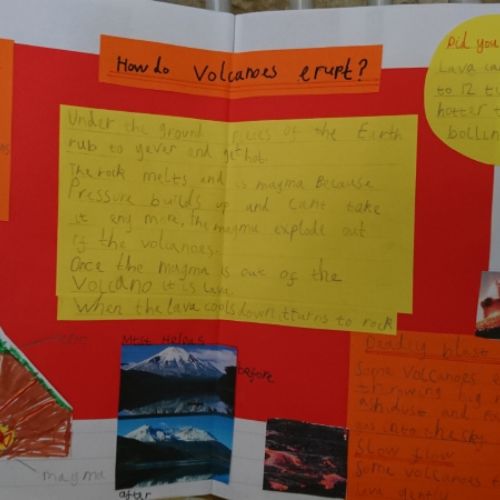 How do Volcanoes erupt?
Did you
Lava ca
to 12 ti
hotter t
boilin
Under the ground pieces of the Earth
rub to gever and get hot.
The rock melts and is magma Because
Pressure builds up and cant take
it any more, the magma explode out
of the volcanoes.
Once the magma is out of the
Volcano it is lava.
When the lava cools down it turns to rock
Most Helens
before
after
magma
Deadly blast
Some volcanoes
throwing big
ash dust and
gas into the sky
Slow flow
Some volcanoes